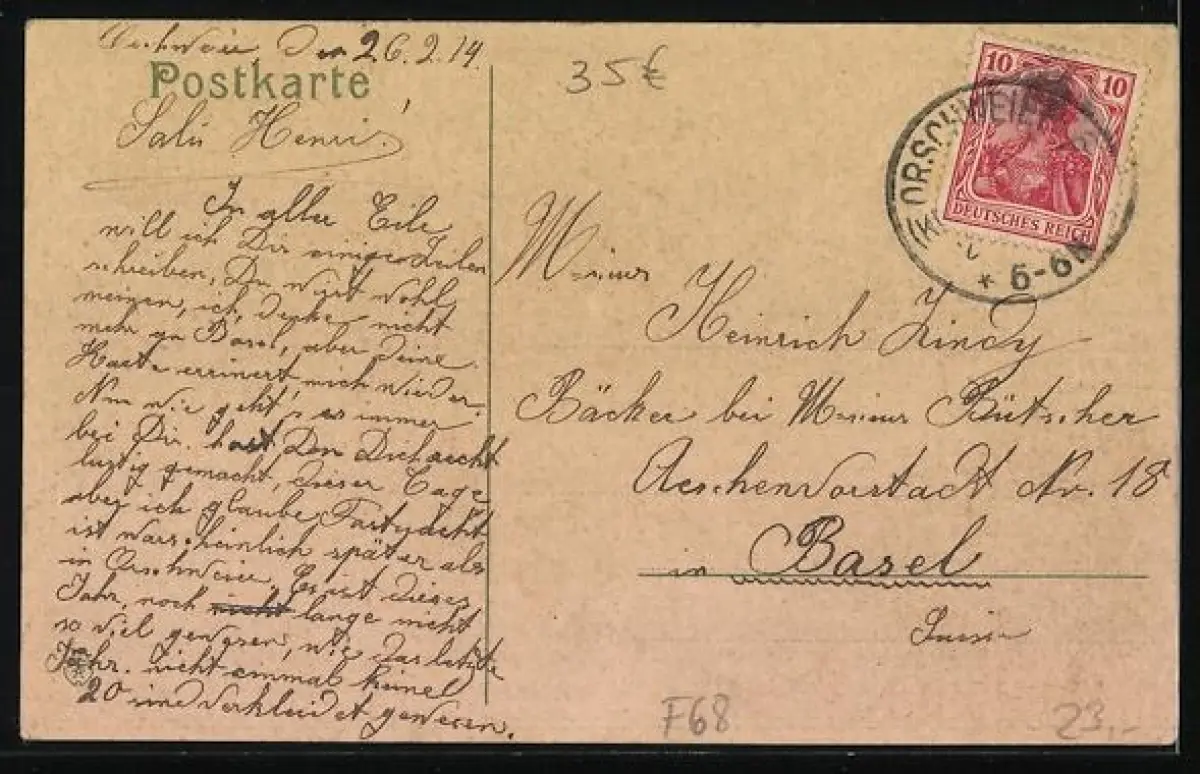 Orschweier, Den 26.2.14.
Postkarte
Salü Henri!
In aller Eile
will ich Dir einige Zeilen
schreiben, Du wirst wohl
meinen, ich denke nicht
mehr an Basel, aber deine
Karte errinert mich wieder.
Nun wie geht's es immer
bei Dir. hast Den Dich recht
lustig gemacht, dieser Tage
aber ich glaube, Fastnacht
ist warscheinlich später als
in Orschweier, Es ist dieses
Jahr, noch nicht lange nicht
so viel gewesen, wie das letzte
Jahr. nicht einmal
20 sind verkleidet gewesen.
35€
10 10
DEUTSCHES REICH
ORSCHWEIER
* 6-6
Monsieur
Heinrich Lindy
Bäcker bei Monsieur Bütscher
Aeschenvorstadt Nr. 18
in Basel
Suisse
F68
23,-